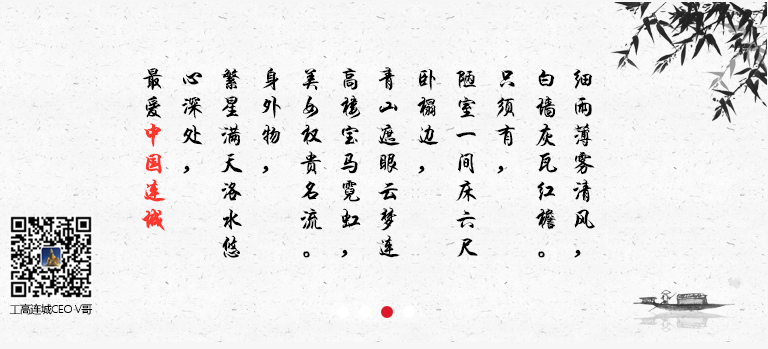 细雨薄雾清风，
白墙灰瓦红襜。
只须有，
陋室一间床六尺
卧榻边，
青山遮眼云梦连
高楼宝马霓虹，
美女权贵名流。
身外物，
繁星满天洛水悠
心深处，
最爱中国连城
工高连城CEO·V哥